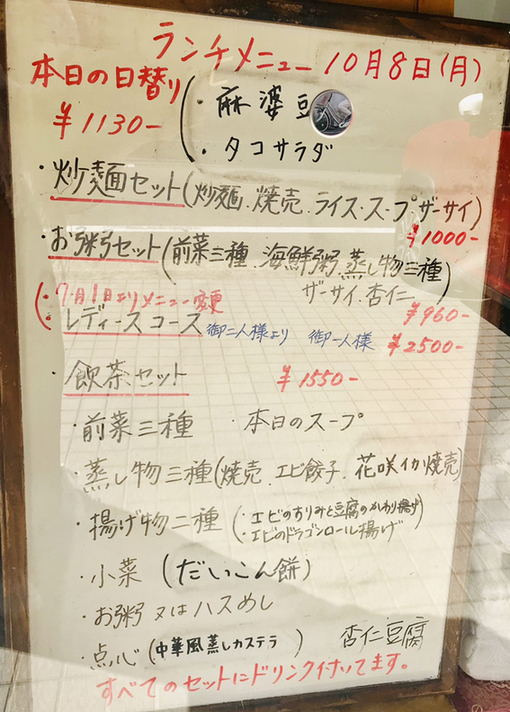 ランチメニュー 10月8日(月)
本日の日替り
¥1130-
・麻婆豆
・タコサラダ
・炒麺セット(炒麺.焼売.ライス・スープザーサイ)
¥1000-
・お粥セット(前菜三種 海鮮粥.蒸し物三種)
ザーサイ.杏仁
¥960-
7月1日よりメニュー変更
・レディースコース 御二人様より 御一人様 ¥2500-
・飲茶セット ¥1550-
・前菜三種 ・本日のスープ
・蒸し物三種(焼売.エビ餃子.花咲イカ焼売)
・揚げ物二種(・エビのすりみと豆腐のかわり揚げ
・エビのドラゴンロール揚げ)
・小菜 (だいこん餅)
・お粥又はハスめし
・点心(中華風蒸しカステラ) 杏仁豆腐
すべてのセットにドリンク付いてます。